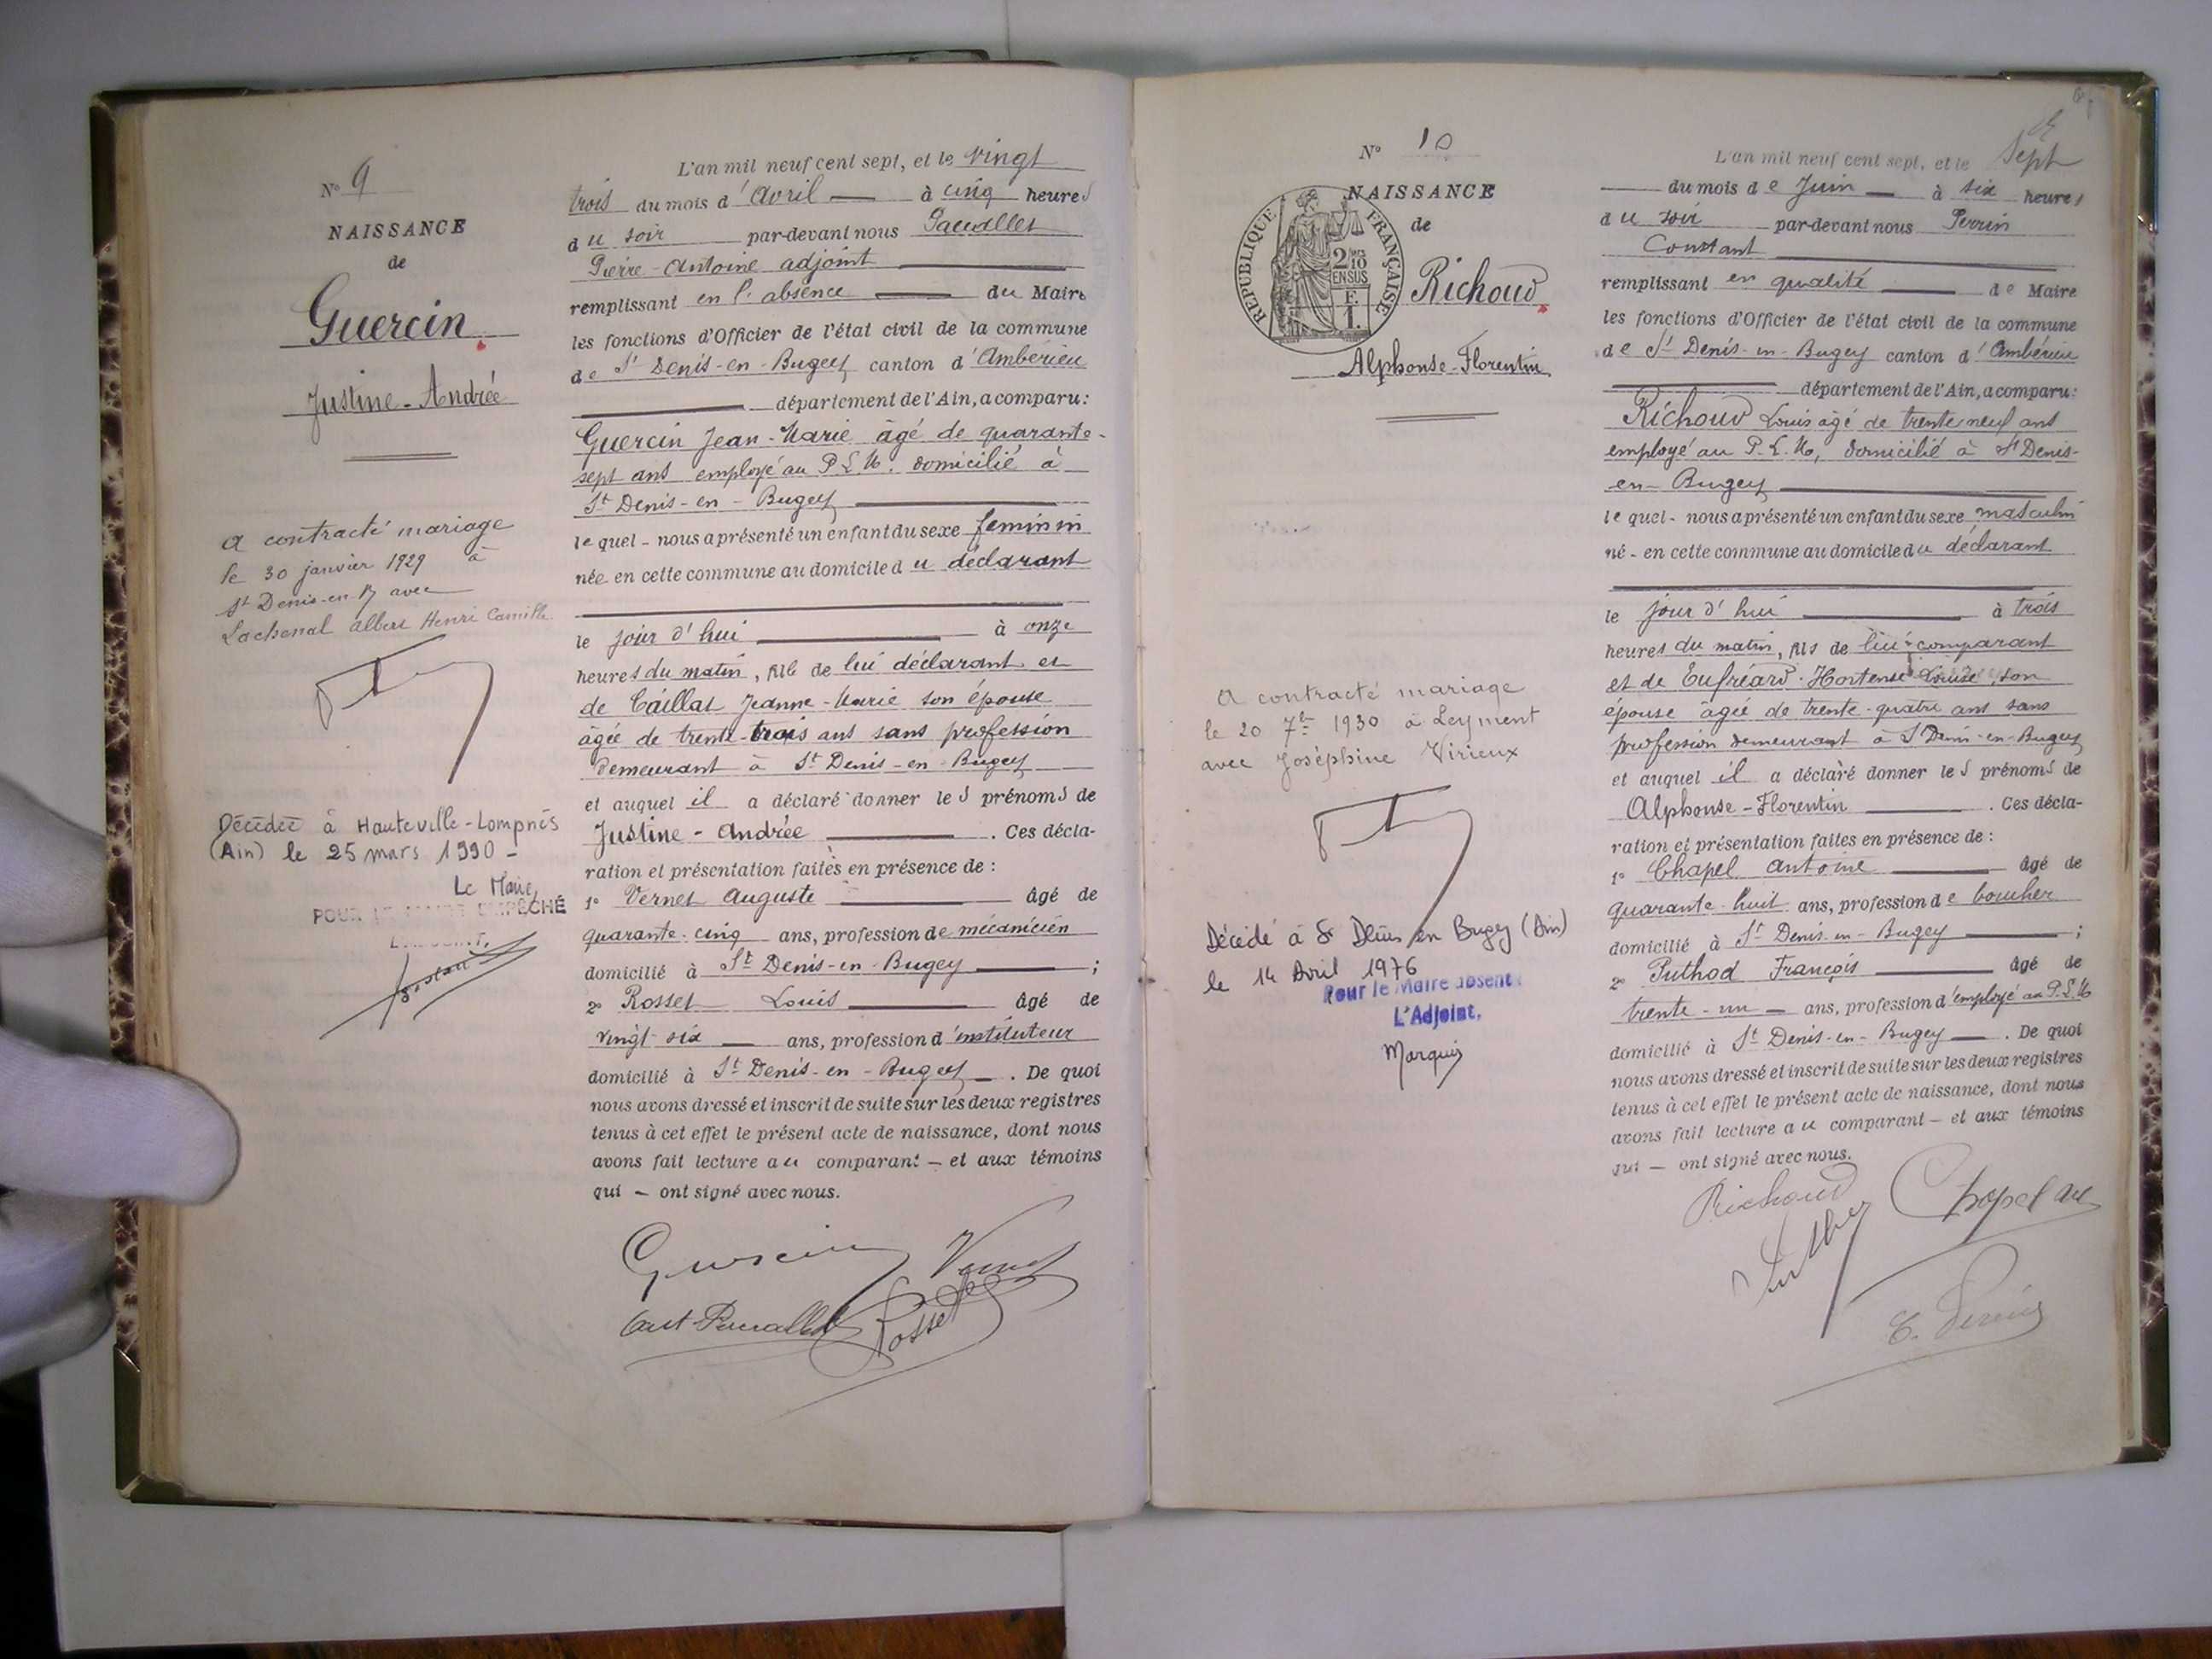 N° 9
NAISSANCE
de
Guercin
Justine-Andrée
a contracté mariage
le 30 janvier 1929 à
St Denis-en-B avec
Lachenal Albert Henri Camille
Décédée à Hauteville-Lompnès
(Ain) le 25 mars 1990 -
Le Maire,
POUR LE MAIRE EMPÊCHÉ
L'ADJOINT,
L'an mil neuf cent sept, et le vingt
trois du mois d'Avril à cinq heures
du soir par-devant nous
Pierre-Antoine adjoint
remplissant en l'absence du Maire
les fonctions d'Officier de l'état civil de la commune
de St Denis-en-Bugey canton d'Ambérieu
département de l'Ain, a comparu :
Guercin Jean-Marie âgé de quarante-
sept ans employé au P.L.M. domicilié à
St Denis-en-Bugey
lequel - nous a présenté un enfant du sexe feminin
née en cette commune au domicile du déclarant
le jour d'hui à onze
heures du matin, fille de lui déclarant et
de Caillat Jeanne-Marie son épouse
agée de trente-trois ans sans profession
demeurant à St Denis-en-Bugey
et auquel il a déclaré donner les prénoms de
Justine-Andrée . Ces décla-
ration et présentation faites en présence de :
1° Vernet Auguste âgé de
quarante-cinq ans, profession de mécanicien
domicilié à St Denis-en-Bugey ;
2° Rosset Louis âgé de
vingt-six ans, profession d'instituteur
domicilié à St Denis-en-Bugey . De quoi
nous avons dressé et inscrit de suite sur les deux registres
tenus à cet effet le présent acte de naissance, dont nous
avons fait lecture au comparant - et aux témoins
qui - ont signé avec nous.
Guercin Vernet
Rosset
N° 10
NAISSANCE
de
REPUBLIQUE FRANÇAISE
2/10
EN SUS
F.
1.
Richoud
Alphonse-Florentin
a contracté mariage
le 20 7bre 1930 à Leyment
avec Joséphine Virieux
Décédé à St Denis en Bugey (Ain)
le 14 Avril 1976
Pour le Maire absent :
L'Adjoint,
Marquis
L'an mil neuf cent sept, et le Sept
du mois de Juin à six heures
du soir par-devant nous Perrin
Constant
remplissant en qualité de Maire
les fonctions d'Officier de l'état civil de la commune
de St Denis-en-Bugey canton d'Ambérieu
département de l'Ain, a comparu :
Richoud Louis âgé de trente neuf ans
employé au P.L.M., domicilié à St Denis-
en-Bugey
lequel - nous a présenté un enfant du sexe masculin
né - en cette commune au domicile du déclarant
le jour d'hui à trois
heures du matin, fils de lui comparant
et de Eufréard Hortense Louise, son
épouse âgée de trente-quatre ans sans
profession demeurant à St Denis-en-Bugey
et auquel il a déclaré donner les prénoms de
Alphonse-Florentin . Ces décla-
ration et présentation faites en présence de :
1° Chapel Antoine âgé de
quarante-huit ans, profession de boucher
domicilié à St Denis-en-Bugey ;
2° Puthod François âgé de
trente-un ans, profession d'employé au P.L.M
domicilié à St Denis-en-Bugey . De quoi
nous avons dressé et inscrit de suite sur les deux registres
tenus à cet effet le présent acte de naissance, dont nous
avons fait lecture au comparant - et aux témoins
qui - ont signé avec nous.
Richoud Chapel
Puthod
C. Perrin